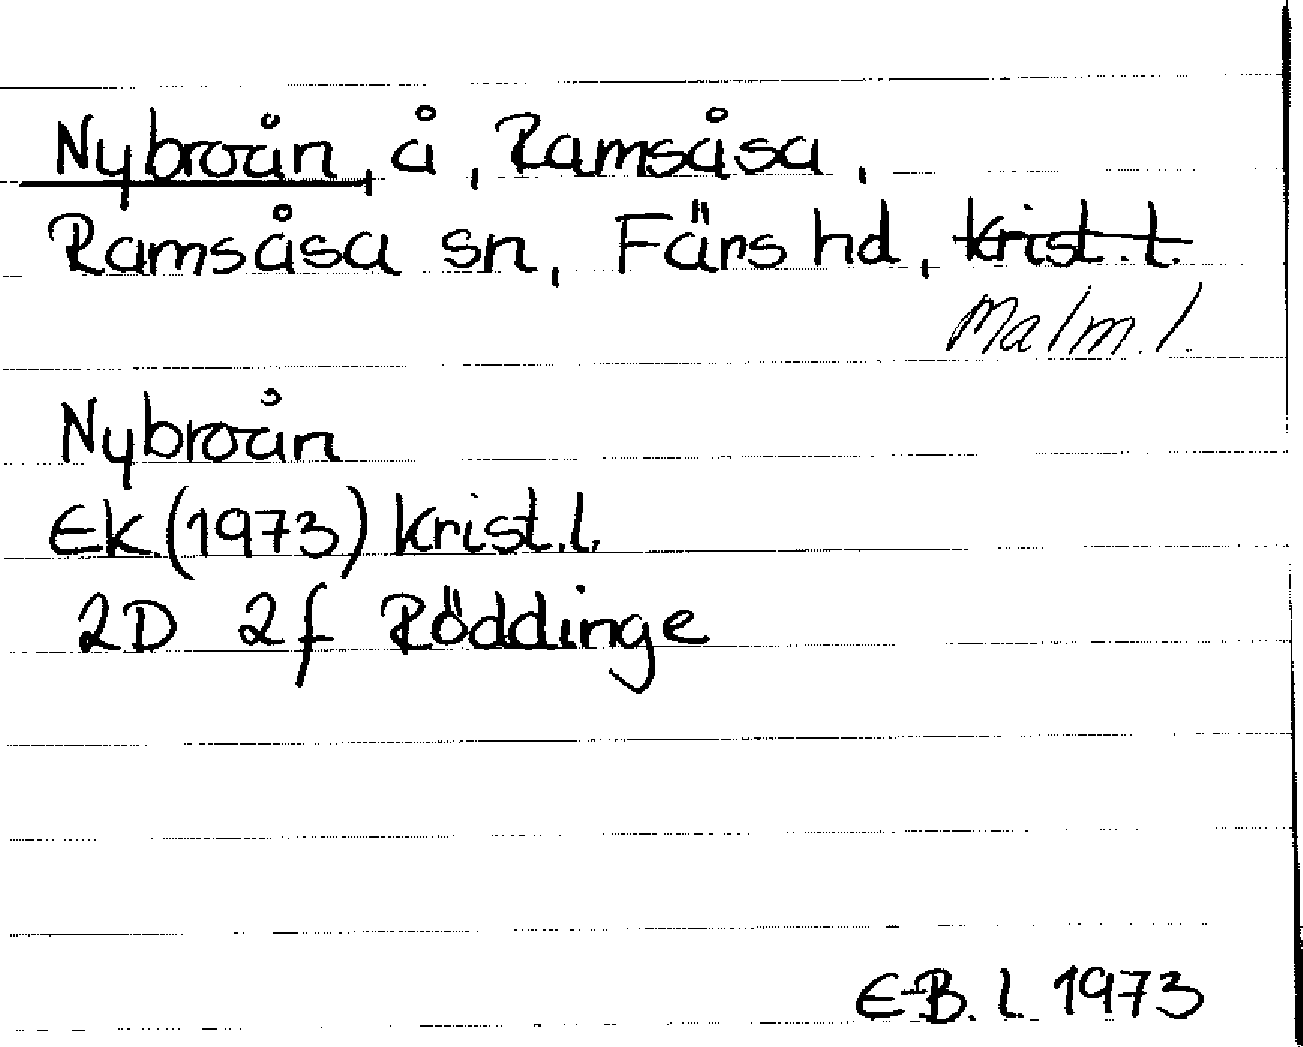 Nybroån, å, Ramsåsa,
Ramsåsa sn, Färs hd, Krist. l.
Malm. l.
Nybroån
EK (1973) Krist. l.
2D 2f Röddinge
E-B. L. 1973